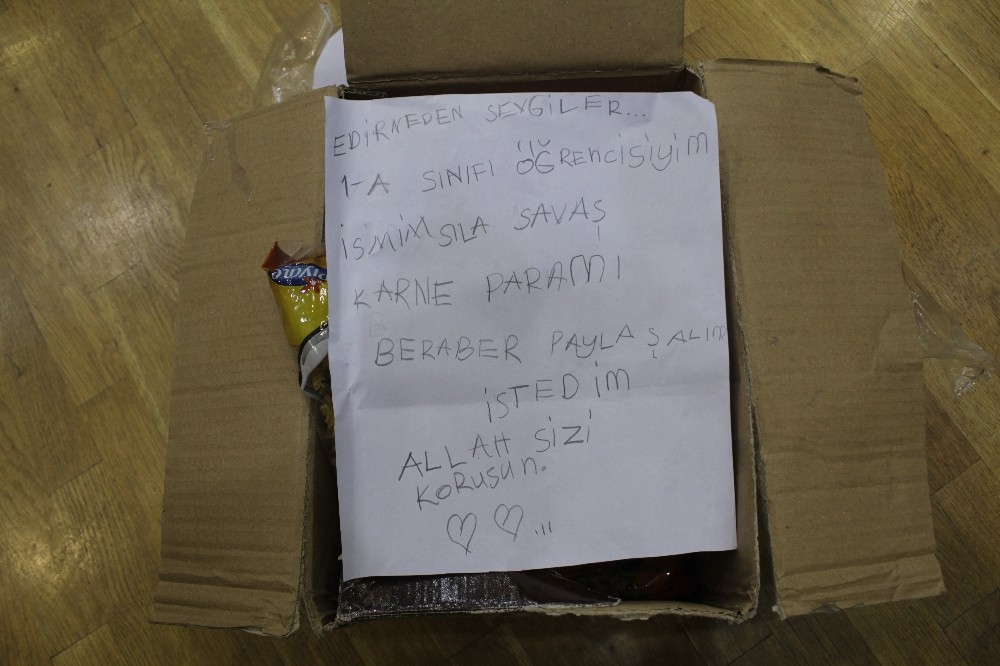 EDİRNEDEN SEVGİLER...
1-A SINIFI ÖĞRENCİSİYİM
İSMİM SILA SAVAŞ
KARNE PARAMI
BERABER PAYLAŞALIM
İSTEDİM
ALLAH SİZİ
KORUSUN.
♡ ♡ ...